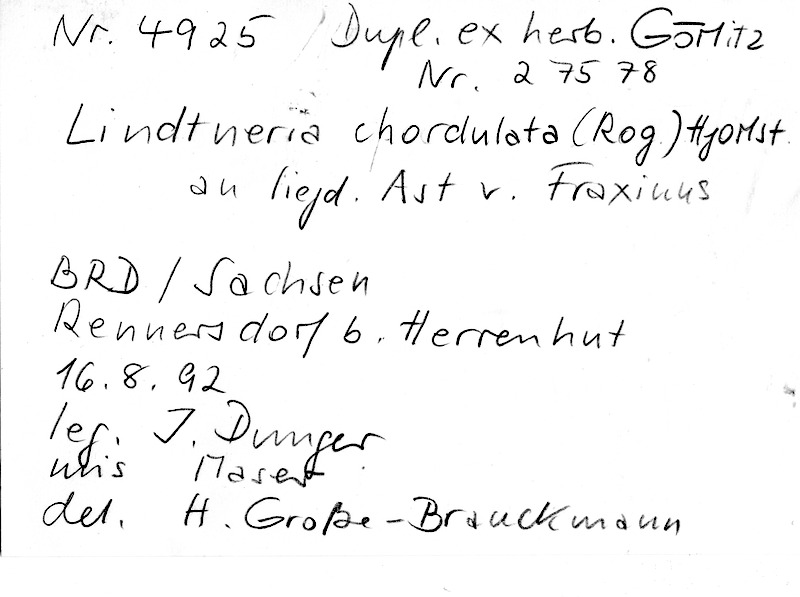 Nr. 4925 / Dupl. ex herb. Görlitz
Nr. 27578
Lindtneria chordulata (Rog.) Hjortst.
an liegd. Ast v. Fraxinus
BRD / Sachsen
Rennersdorf b. Herrenhut
16.8.92
leg. I. Dunger
mis
det. H. Große-Brauckmann